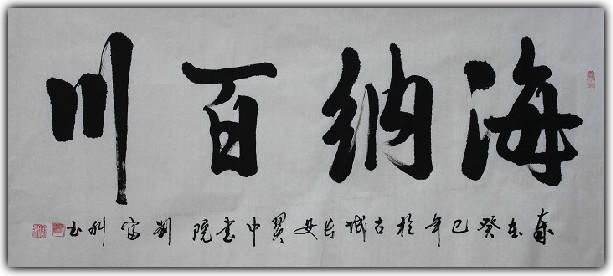 海纳百川
岁在癸巳年於古城长安翼中书院刘富书